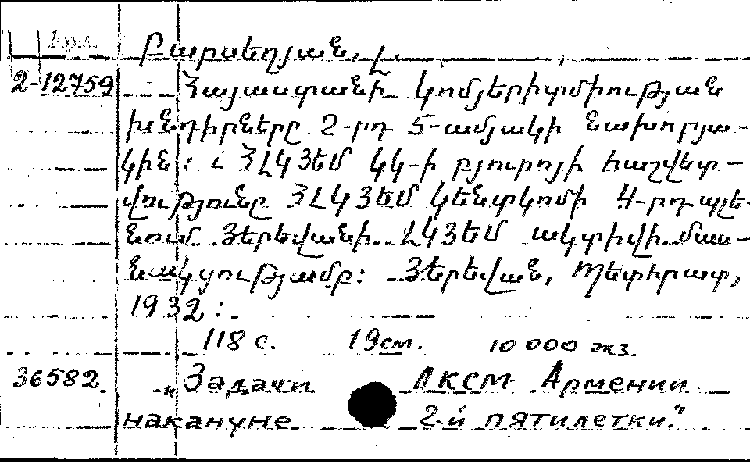 1 դր.
Բարսեղյան, Լ.
2-12759 Հայաստանի կոմյերիտմիության
խնդիրները 2-րդ 5-ամյակի նախօրյա-
կին: ՀԼԿՅԵՄ ԿԿ-ի բյուրոյի հաշվետ-
վությունը ՀԼԿՅԵՄ կենտկոմի 4-րդ պլե-
նում Յերեվանի ԼԿՅԵՄ ակտիվի մաս-
նակցությամբ: Յերեվան, Պետհրատ,
1932:
118 с. 19см. 10 000 экз.
36582 „Задачи ЛКСМ Армении
накануне 2-й пятилетки."